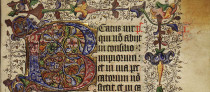 Beatus vir
qui nō abijt
in consilio
impiorum
et in uia pec
catorum nō
stetit et in ca